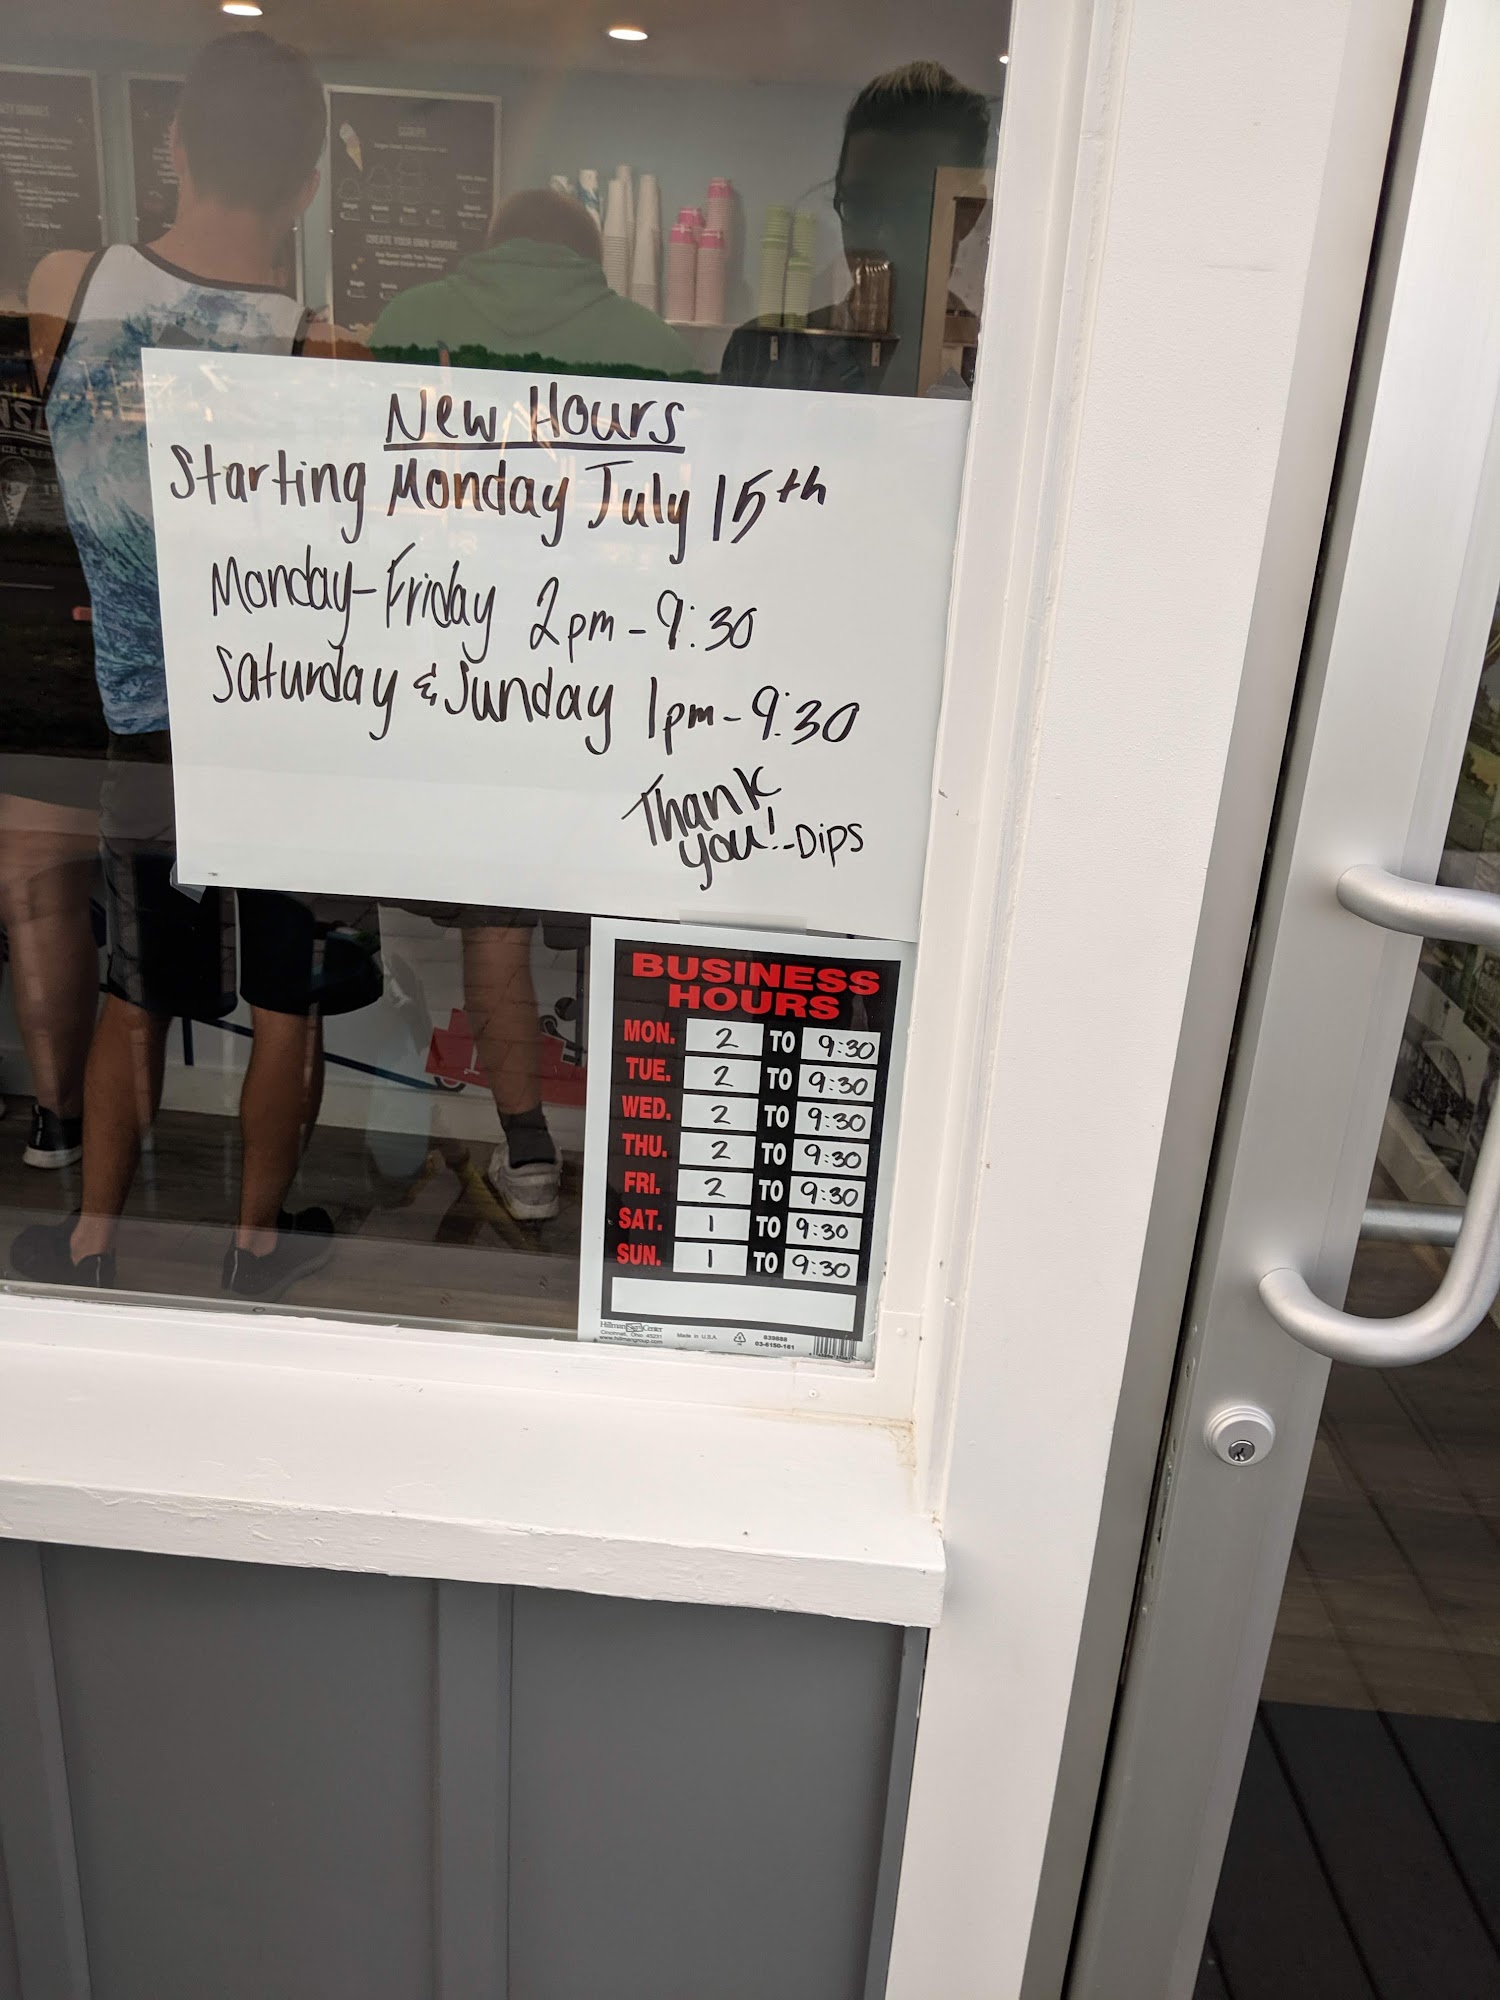 New Hours
Starting Monday July 15th
Monday-Friday 2pm-9:30
Saturday & Sunday 1pm-9:30
Thank
you! -Dips
BUSINESS
HOURS
MON. 2 TO 9:30
TUE. 2 TO 9:30
WED. 2 TO 9:30
THU. 2 TO 9:30
FRI. 2 TO 9:30
SAT. 1 TO 9:30
SUN. 1 TO 9:30
Hillman Sign Center
Cincinnati, Ohio 45231
www.hillmangroup.com
Made in U.S.A.
839888
03-6150-161
SCOOPS
CREATE YOUR OWN SUNDAE